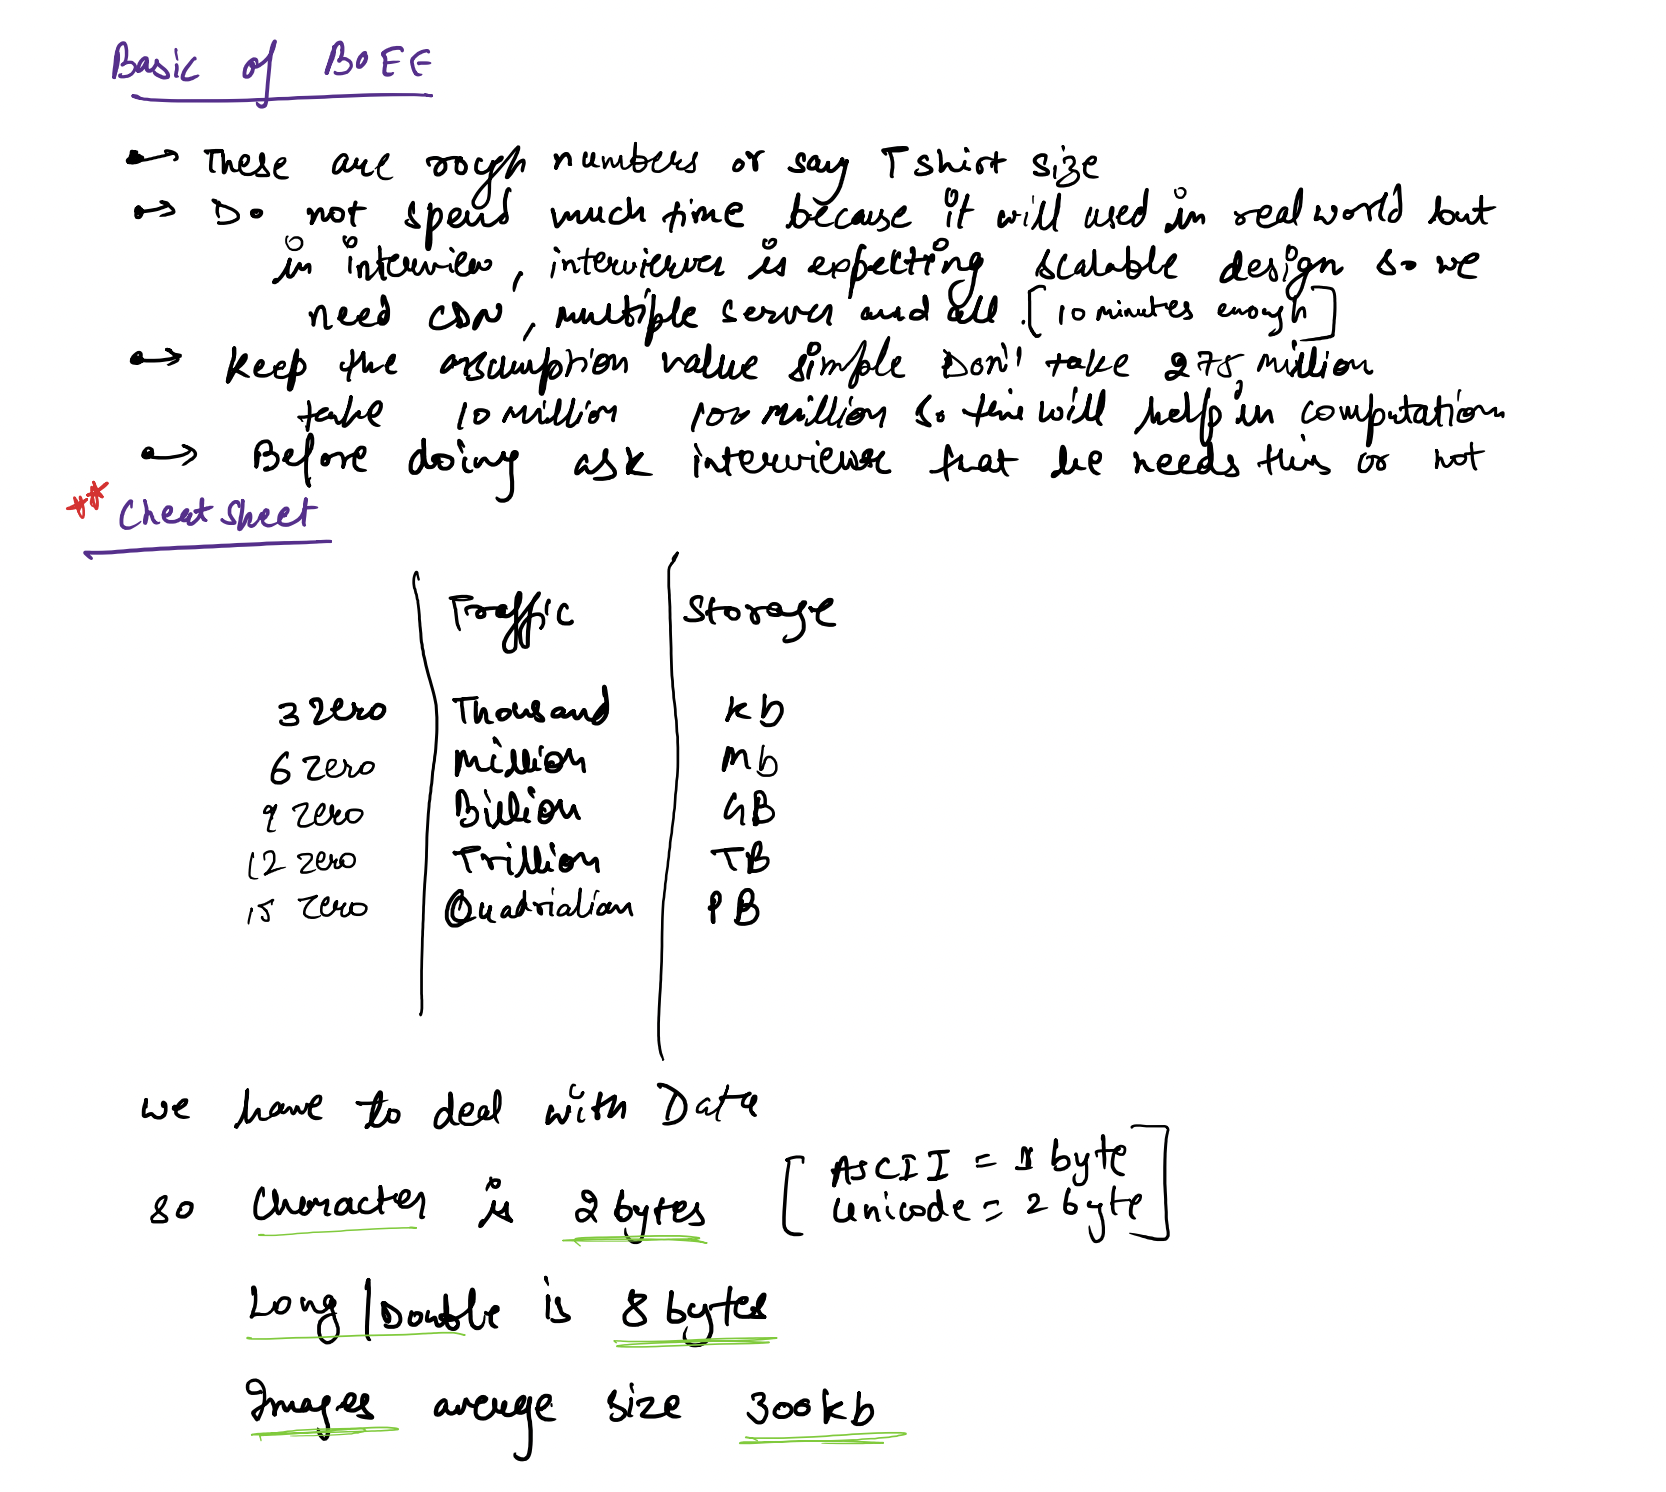 Basic of BOEE
These are rough numbers or say T shirt size
Do not spend much time because it will used in real world but
in interview, interviewer is expecting scalable design so we
need CDN, multiple server and all. [10 minutes enough]
Keep the assumption value simple Don't take 275 million
take 10 million 100 million so time will help in computation
Before doing ask interviewer that he needs this or not
** Cheat sheet
Traffic Storage
3 zero Thousand Kb
6 zero Million Mb
9 zero Billion GB
12 zero Trillion TB
15 zero Quadrialian PB
we have to deal with Data
[ASCII = 1 byte
so Character is 2 bytes Unicode = 2 byte]
Long/Double is 8 bytes
Images average size 300kb